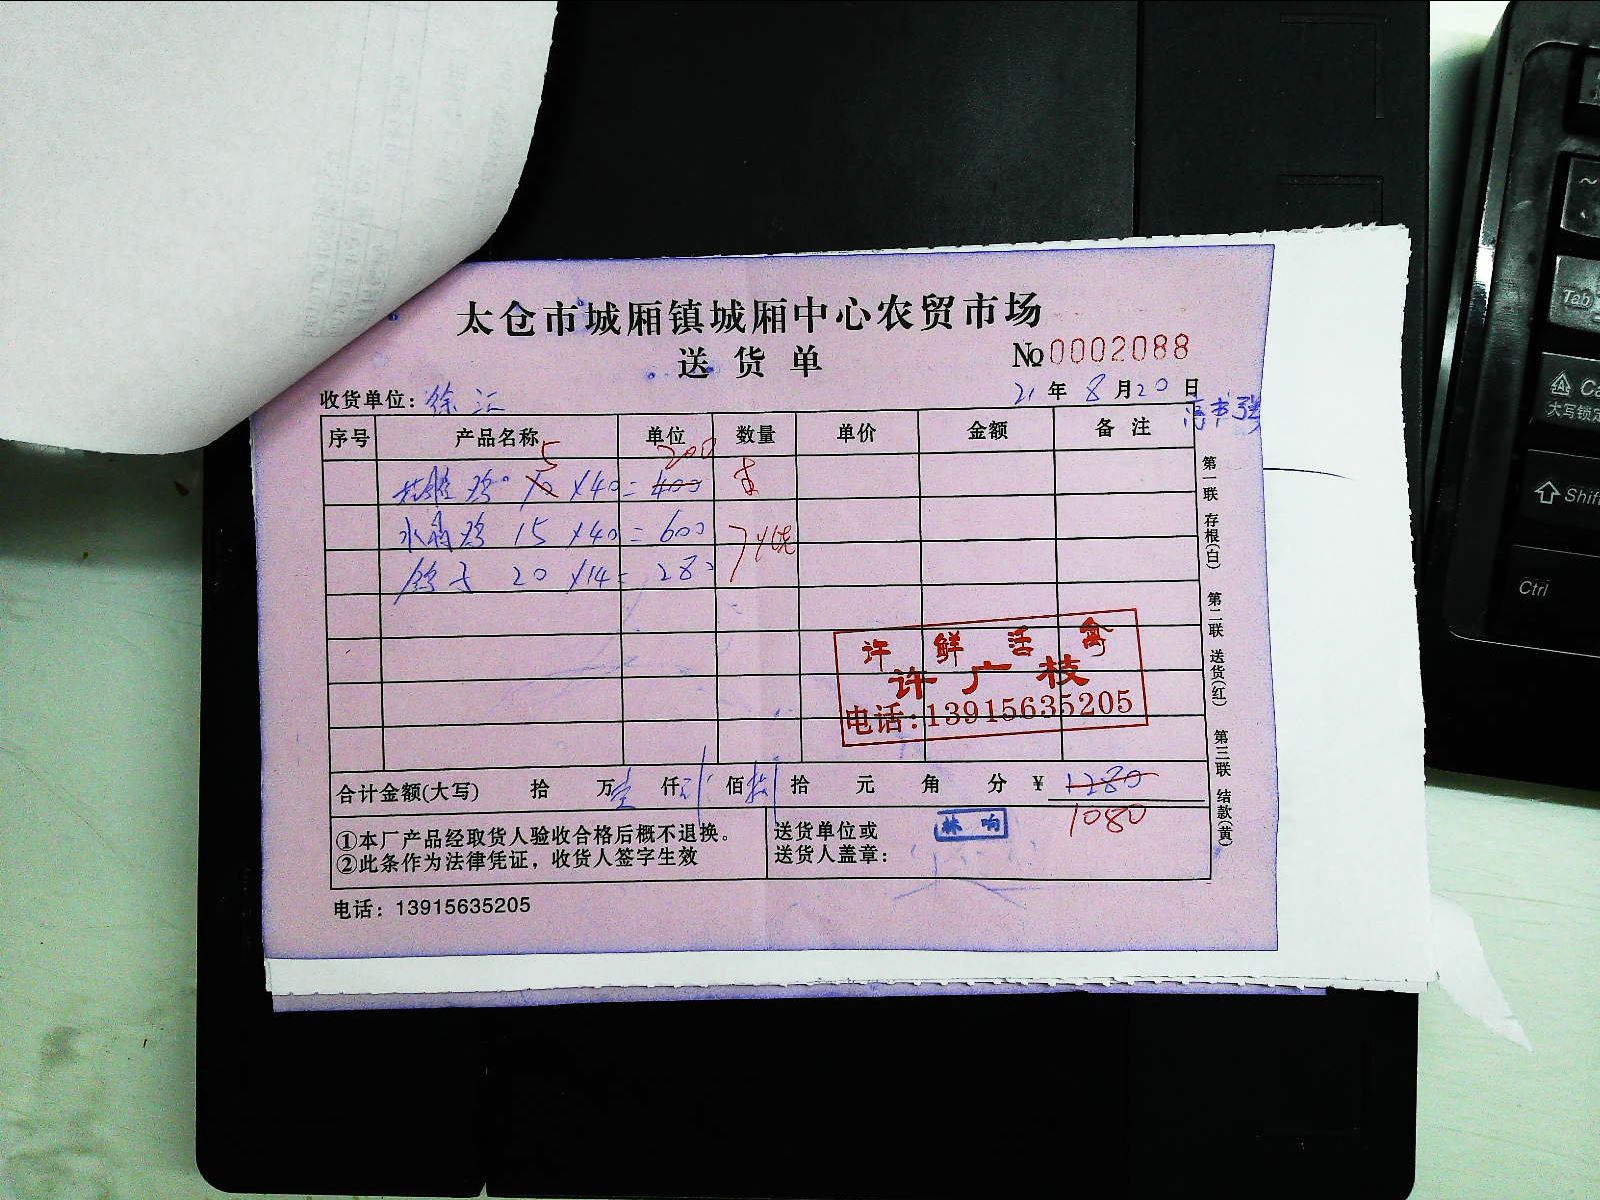 太仓市城厢镇城厢中心农贸市场
送货单
№0002088
收货单位：徐汇
21年8月20日
序号 产品名称 单位 数量 单价 金额 备注
5 200
鸡 10 ×40=400
水 鸡 15 ×40=600
鸽子 20 ×14=280
许鲜活禽
许广枝
电话:13915635205
合计金额(大写) 拾 万壹 仟 佰 拾 元 角 分 ¥ 1280
1080
①本厂产品经取货人验收合格后概不退换。
②此条作为法律凭证，收货人签字生效
送货单位或
送货人盖章：
林响
电话：13915635205
第一联 存根(白)
第二联 送货(红)
第三联 结款(黄)
Tab
Ca
大写锁定
Shif
Ctrl